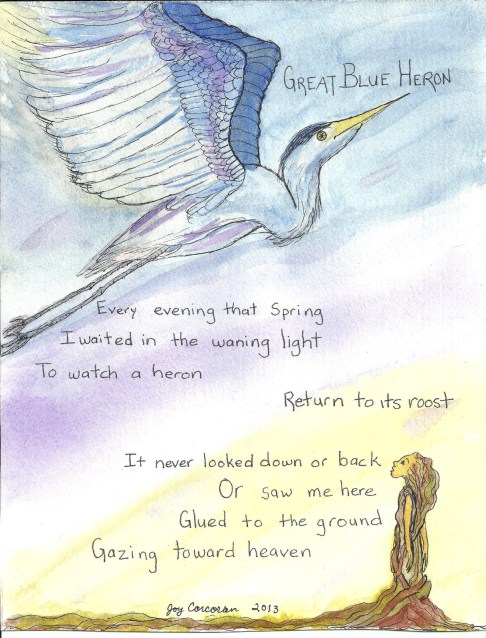 GREAT BLUE HERON
Every evening that Spring
I waited in the waning light
To watch a heron
Return to its roost
It never looked down or back
Or saw me here
Glued to the ground
Gazing toward heaven
Joy Corcoran 2013